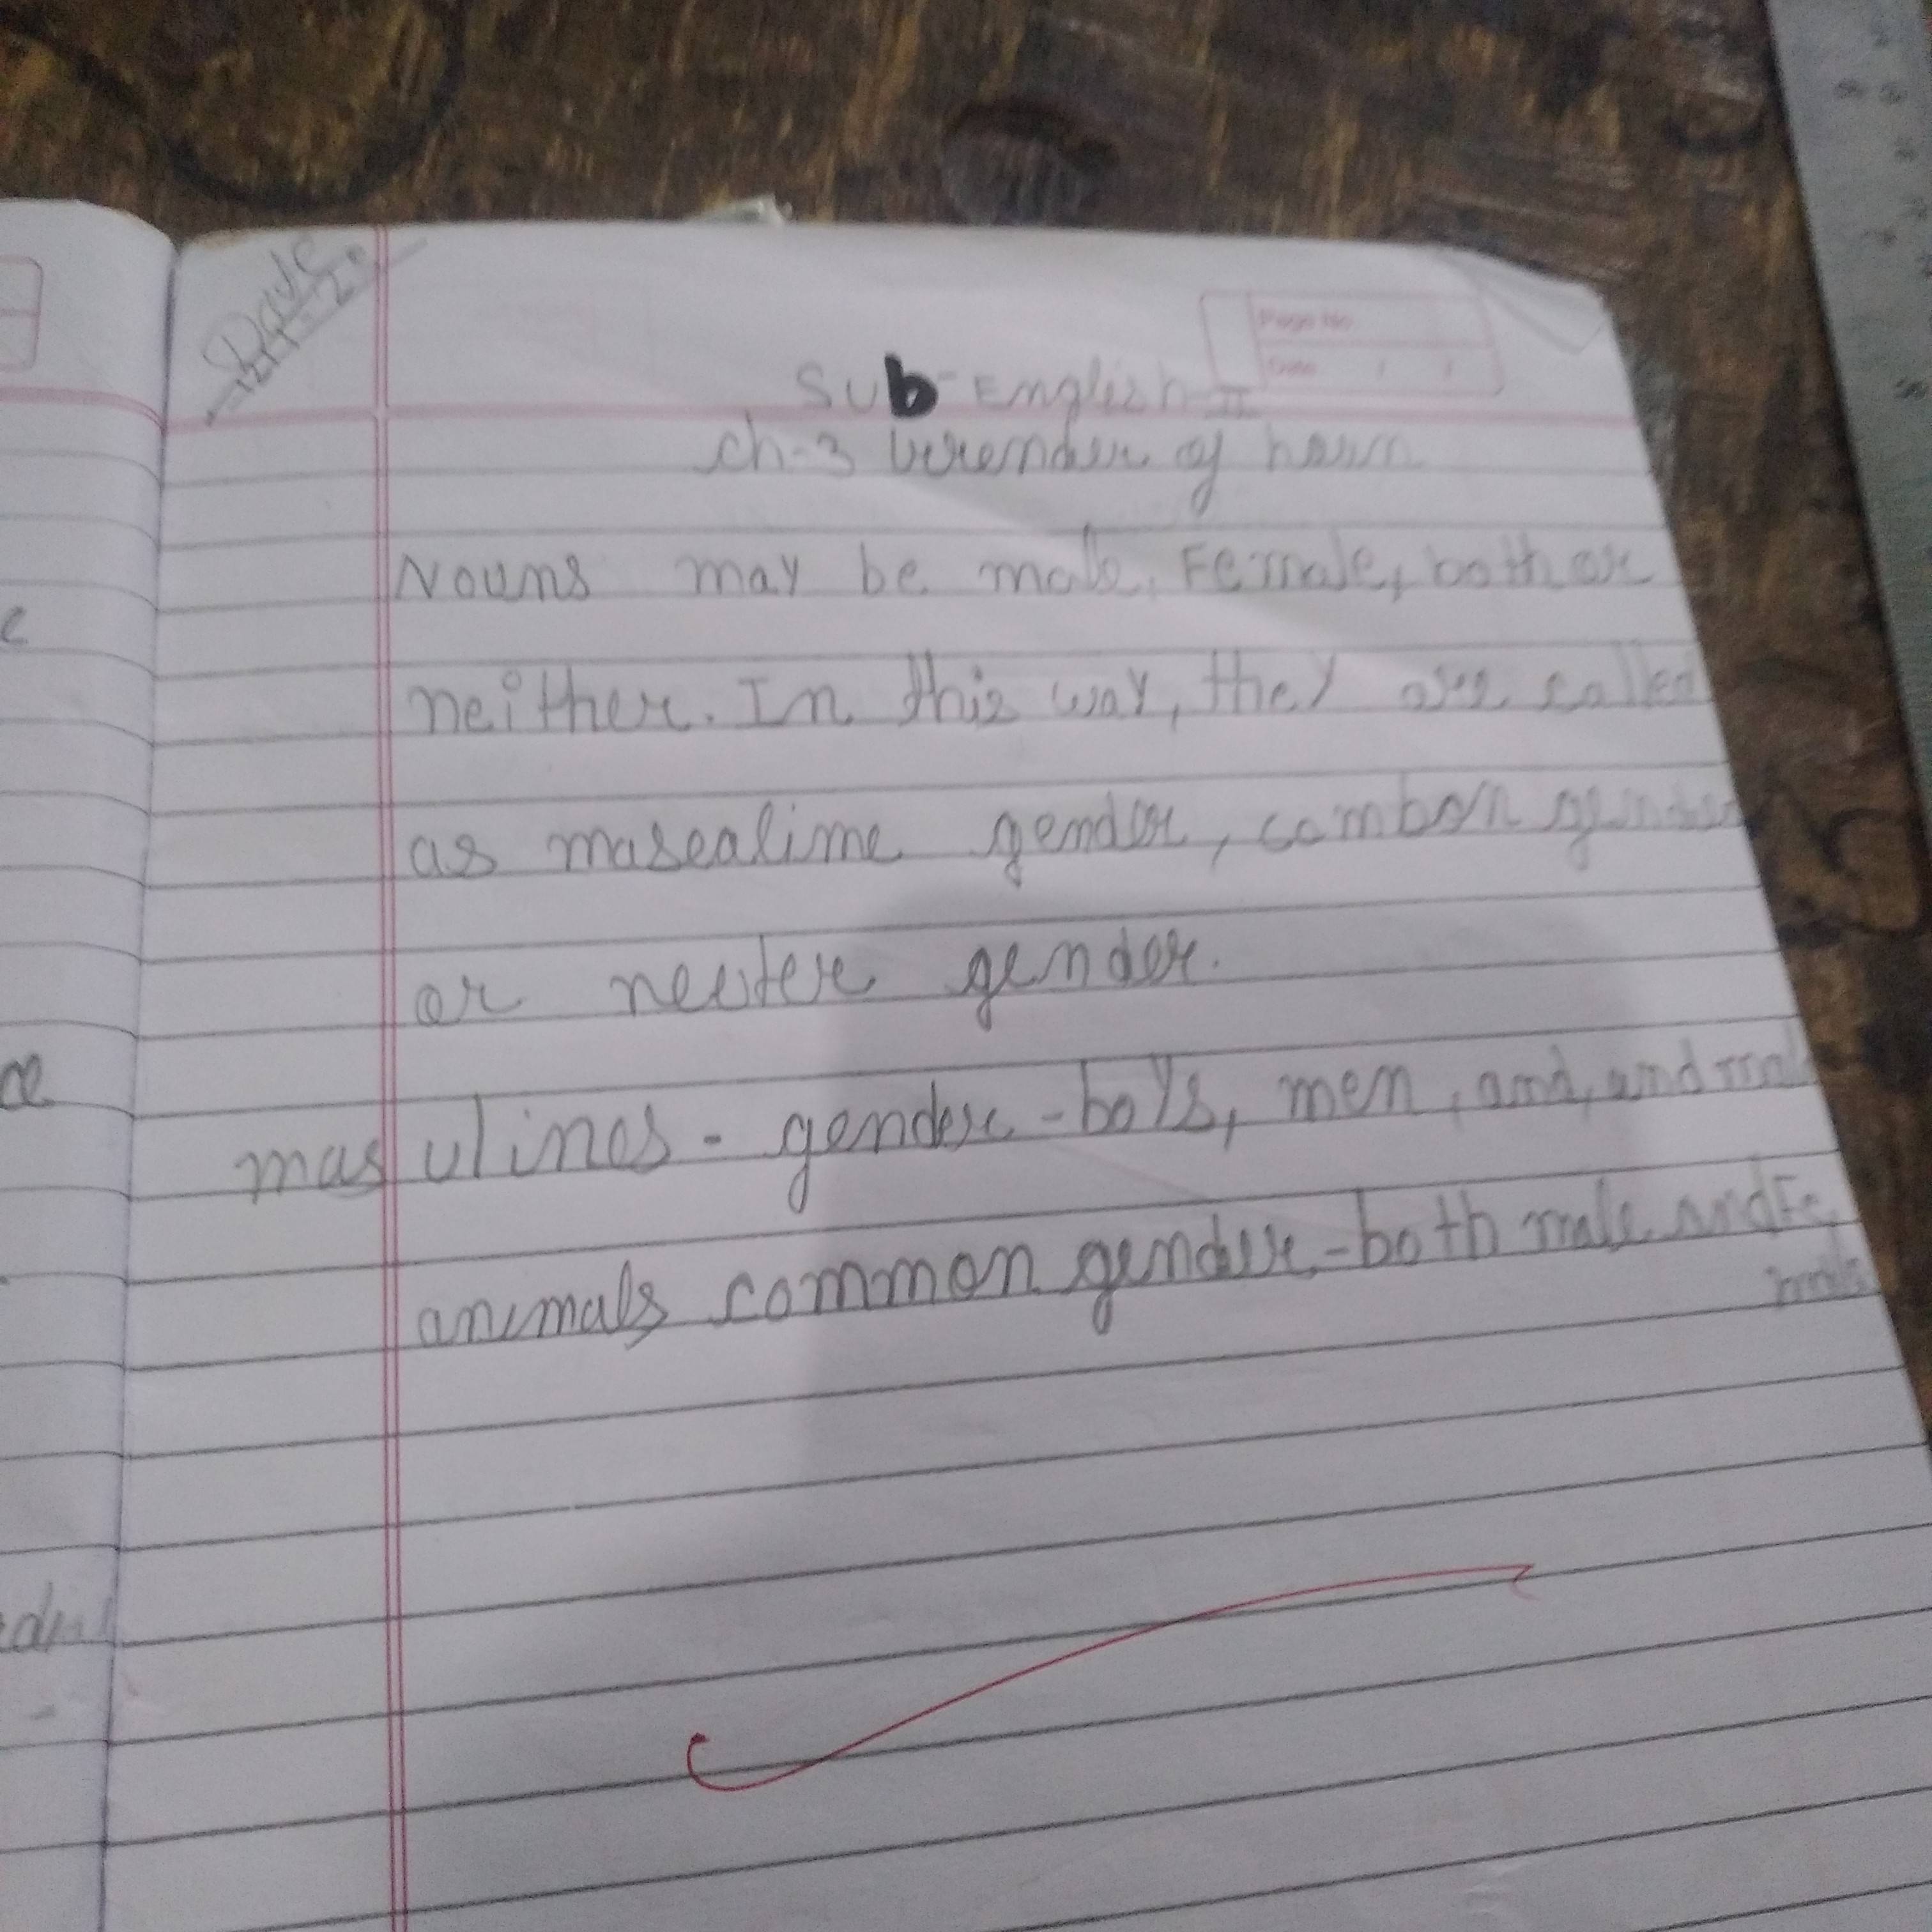 Date
Page No.
Date / /
Sub-English-II
ch-3 Gerender of noun
Nouns may be male, Female, both or
neither. In this way, they are called
as masealime gender, combon gender
or neuter gender.
masulines - gender - boys, men, and, and male
animals common gender - both male and Fe
male